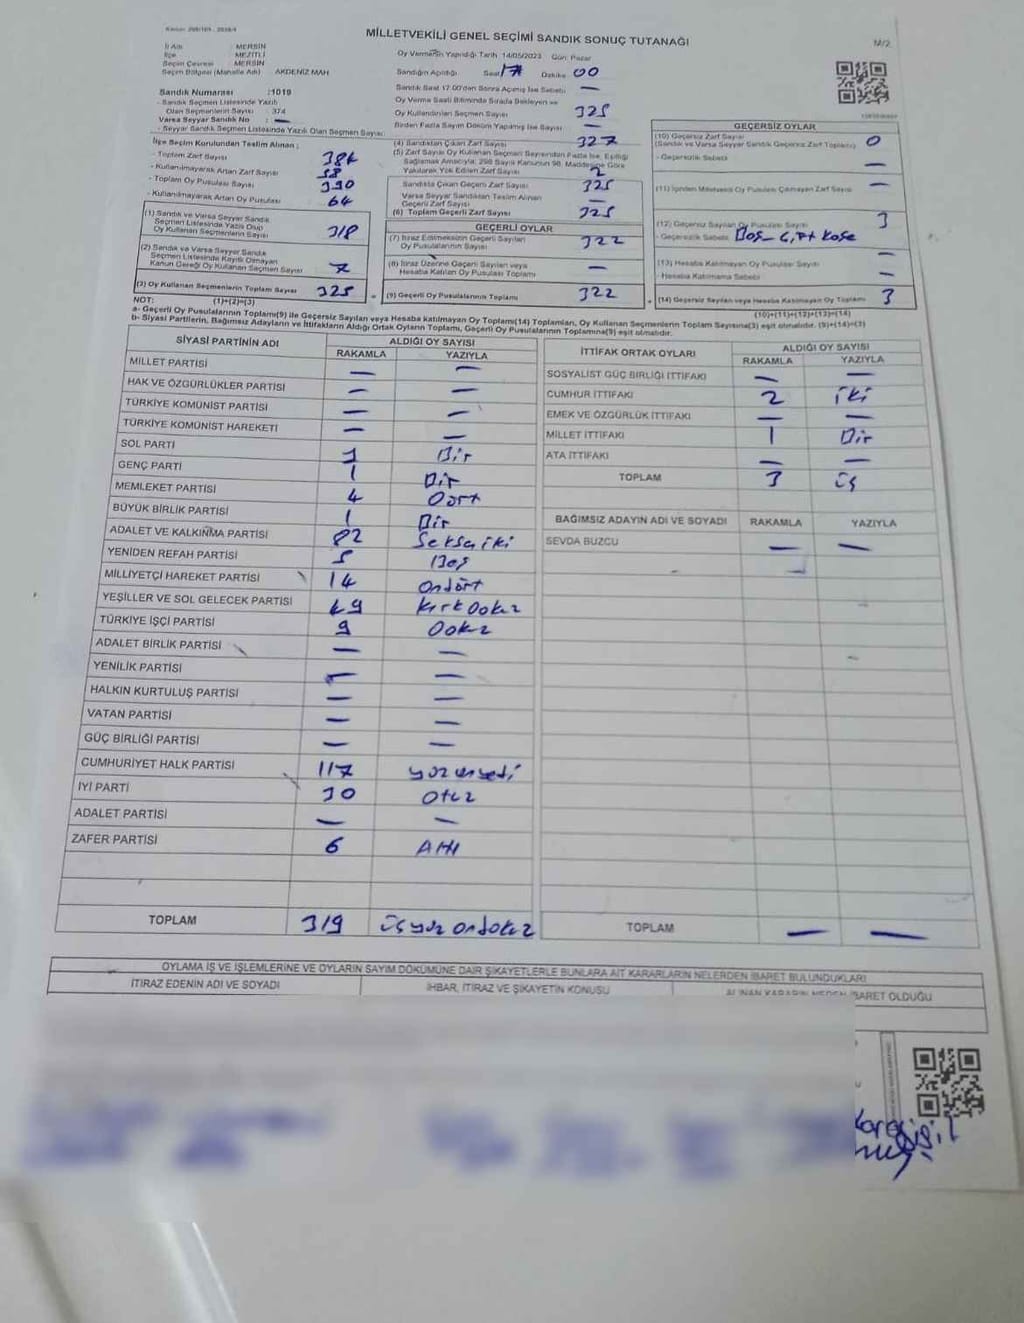 MİLLETVEKİLİ GENEL SEÇİMİ SANDIK SONUÇ TUTANAĞI
M/2
İl Adı : MERSİN
İlçe : MEZİTLİ
Seçim Çevresi : MERSİN
Seçim Bölgesi (Mahalle Adı) : AKDENİZ MAH
Oy Vermenin Yapıldığı Tarih 14/05/2023 Gün: Pazar
Sandığın Açıldığı Saat 17 Dakika 00
Sandık Saat 17.00'den Sonra Açılmış İse Sebebi —
Oy Verme Saati Bitiminde Sırada Bekleyen ve
Oy Kullandıran Seçmen Sayısı 325
Birden Fazla Sayım Döküm Yapılmış İse Sayısı —
Sandık Numarası :1019
- Sandık Seçmen Listesinde Yazılı
Olan Seçmenlerin Sayısı : 374
Varsa Seyyar Sandık No : —
- Seyyar Sandık Seçmen Listesinde Yazılı Olan Seçmen Sayısı:
İlçe Seçim Kurulundan Teslim Alınan ;
- Toplam Zarf Sayısı
- Kullanılmayarak Artan Zarf Sayısı
- Toplam Oy Pusulası Sayısı 390
- Kullanılmayarak Artan Oy Pusulası 64
(1) Sandık ve Varsa Seyyar Sandık
Seçmen Listesinde Yazılı Olup
Oy Kullanan Seçmenlerin Sayısı 318
(2) Sandık ve Varsa Seyyar Sandık
Seçmen Listesinde Kayıtlı Olmayan
Kanun Gereği Oy Kullanan Seçmen Sayısı 7
(3) Oy Kullanan Seçmenlerin Toplam Sayısı 325
(4) Sandıktan Çıkan Zarf Sayısı 327
(5) Zarf Sayısı Oy Kullanan Seçmen Sayısından Fazla İse, Eşitliği
Sağlamak Amacıyla; 298 Sayılı Kanunun 98. Maddesine Göre
Yakılarak Yok Edilen Zarf Sayısı 2
Sandıkta Çıkan Geçerli Zarf Sayısı 325
Varsa Seyyar Sandıktan Teslim Alınan
Geçerli Zarf Sayısı —
(6) Toplam Geçerli Zarf Sayısı 325
GEÇERLİ OYLAR
(7) İtiraz Edilmeksizin Geçerli Sayılan
Oy Pusulalarının Sayısı 322
(8) İtiraz Üzerine Geçerli Sayılan veya
Hesaba Katılan Oy Pusulası Toplamı —
(9) Geçerli Oy Pusulalarının Toplamı 322
GEÇERSİZ OYLAR
(10) Geçersiz Zarf Sayısı
(Sandık ve Varsa Seyyar Sandık Geçersiz Zarf Toplamı) 0
- Geçersizlik Sebebi —
(11) İçinden Milletvekili Oy Pusulası Çıkmayan Zarf Sayısı —
(12) Geçersiz Sayılan Oy Pusulası Sayısı 3
- Geçersizlik Sebebi
(13) Hesaba Katılmayan Oy Pusulası Sayısı —
- Hesaba Katılmama Sebebi —
(14) Geçersiz Sayılan veya Hesaba Katılmayan Oy Toplamı 3
NOT: (1)+(2)=(3)
(10)+(11)+(12)+(13)=(14)
a- Geçerli Oy Pusulalarının Toplamı(9) ile Geçersiz Sayılan veya Hesaba katılmayan Oy Toplamı(14) Toplamları, Oy Kullanan Seçmenlerin Toplam Sayısına(3) eşit olmalıdır. (9)+(14)=(3)
b- Siyasi Partilerin, Bağımsız Adayların ve İttifakların Aldığı Ortak Oyların Toplamı, Geçerli Oy Pusulalarının Toplamına(9) eşit olmalıdır.
SİYASİ PARTİNİN ADI ALDIĞI OY SAYISI
RAKAMLA YAZIYLA
MİLLET PARTİSİ — —
HAK VE ÖZGÜRLÜKLER PARTİSİ — —
TÜRKİYE KOMÜNİST PARTİSİ — —
TÜRKİYE KOMÜNİST HAREKETİ — —
SOL PARTİ 1 Bir
GENÇ PARTİ 1 Bir
MEMLEKET PARTİSİ 4 Dört
BÜYÜK BİRLİK PARTİSİ 1 Bir
ADALET VE KALKINMA PARTİSİ 82 Seksen iki
YENİDEN REFAH PARTİSİ 5 Beş
MİLLİYETÇİ HAREKET PARTİSİ 14 Ondört
YEŞİLLER VE SOL GELECEK PARTİSİ 49 Kırk Dokuz
TÜRKİYE İŞÇİ PARTİSİ 9 Dokuz
ADALET BİRLİK PARTİSİ — —
YENİLİK PARTİSİ — —
HALKIN KURTULUŞ PARTİSİ — —
VATAN PARTİSİ — —
GÜÇ BİRLİĞİ PARTİSİ — —
CUMHURİYET HALK PARTİSİ 117 yüz onyedi
İYİ PARTİ 30 Otuz
ADALET PARTİSİ — —
ZAFER PARTİSİ 6 Altı
TOPLAM 319 üçyüz ondokuz
İTTİFAK ORTAK OYLARI ALDIĞI OY SAYISI
RAKAMLA YAZIYLA
SOSYALİST GÜÇ BİRLİĞİ İTTİFAKI — —
CUMHUR İTTİFAKI 2 iki
EMEK VE ÖZGÜRLÜK İTTİFAKI — —
MİLLET İTTİFAKI 1 Bir
ATA İTTİFAKI — —
TOPLAM 3 üç
BAĞIMSIZ ADAYIN ADI VE SOYADI RAKAMLA YAZIYLA
SEVDA BUZCU — —
TOPLAM — —
OYLAMA İŞ VE İŞLEMLERİNE VE OYLARIN SAYIM DÖKÜMÜNE DAİR ŞİKAYETLERLE BUNLARA AİT KARARLARIN NELERDEN İBARET BULUNDUKLARI
İTİRAZ EDENİN ADI VE SOYADI İHBAR, İTİRAZ VE ŞİKAYETİN KONUSU ALINAN KARARIN NEDEN İBARET OLDUĞU